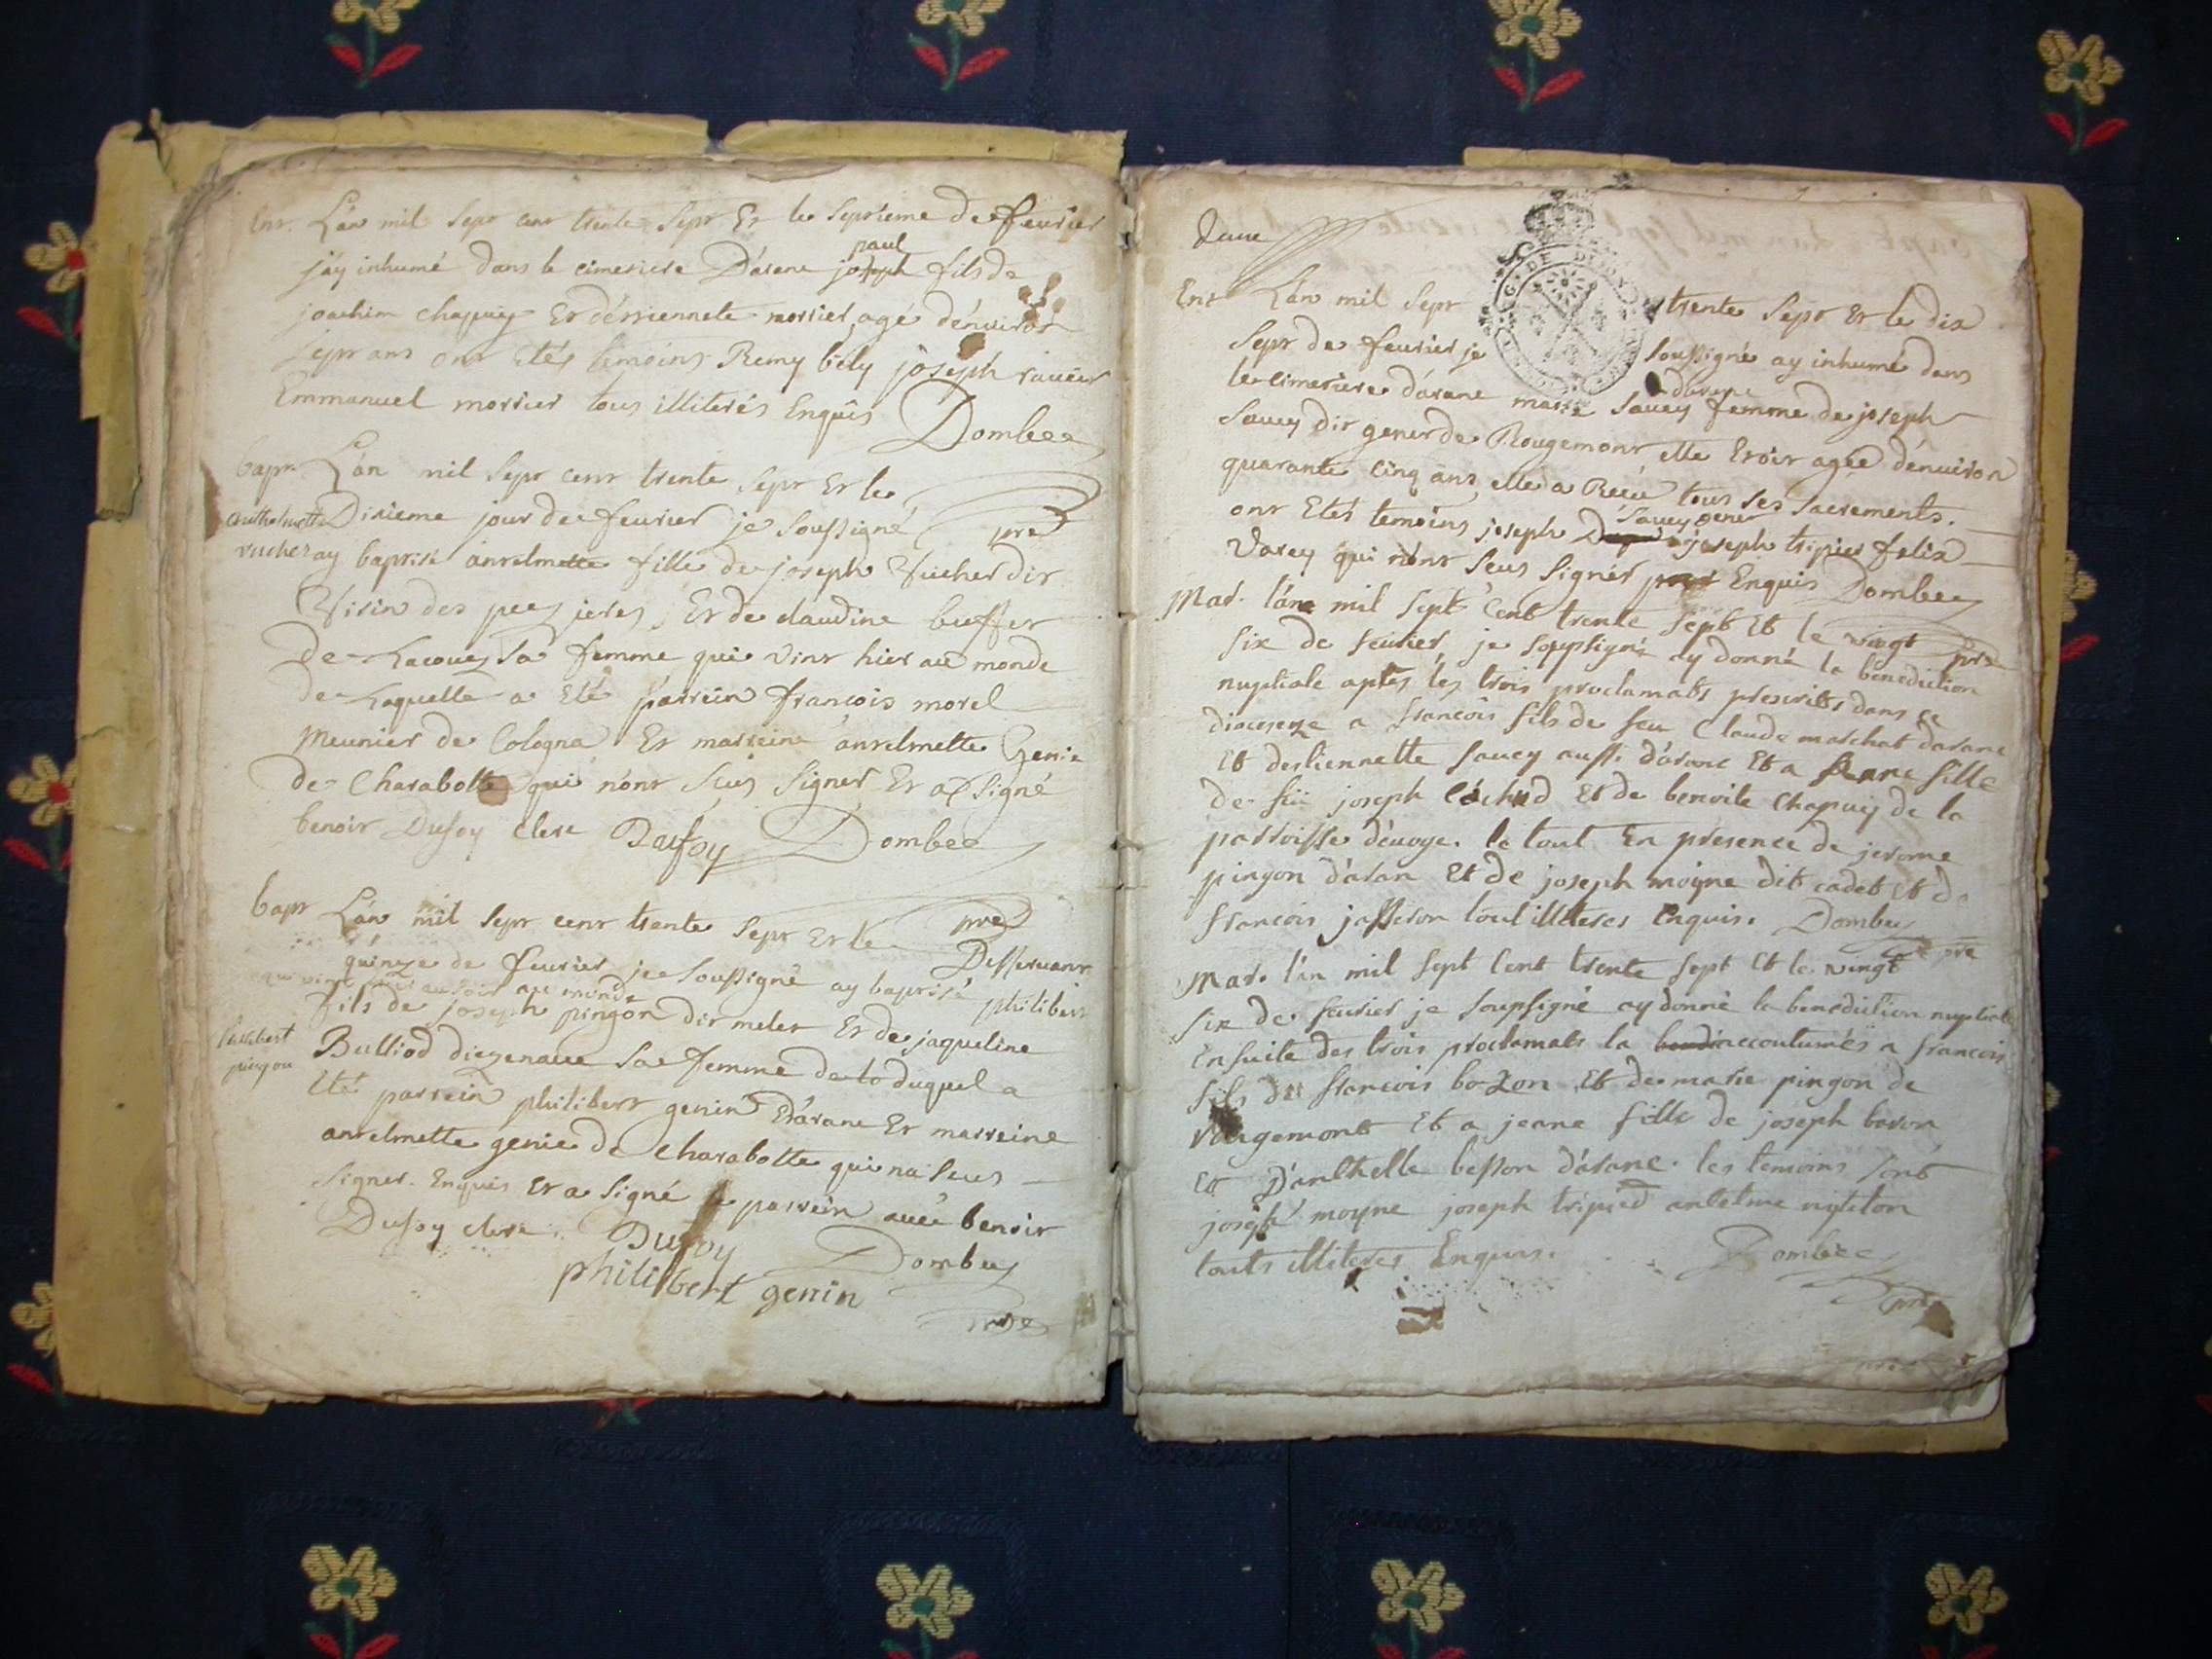 Ent. L'an mil sept cent trente sept Et le septieme de feurier
j'ay inhumé dans le cimetiere D'arane joseph paul fils de
joachim chapuy Et d'étiennete mortier agé d'enuiron
sept ans ont Etés temoins Remy bily joseph rauier
Emmanuel mortier tous illiterés Enquis Dombee
bapt. L'an mil sept cent trente sept Et le
Dixieme jour de feurier je soussigné pre
anthelmette
vucher
ay baptisé antelmette fille de joseph Vucher dit
Visin des peezieres, Et de claudine buffet
De Lacoux sa femme qui vint hier au monde
de Laquelle a Eté parrein françois morel
meunier de Cologna Et marreine antelmette Genie
de Charabotte qui n'ont sçus signer Et a signé
benoit Dufoy clerc Dufoy Dombee
bapt L'an mil sept cent trente sept Et le pre
Desseruant
quinze de feurier je soussigné ay baptisé philibert
qui vint hier au soir au monde
fils de joseph pingon dit meler Et de jaqueline
philibert
pingon
Bulliod d'izenaue sa femme de to duquel a
Eté parrein philibert genin D'arane Et marreine
antelmette genie de Charabotte qui na sceus
signer. Enquis Et a signé le parrein auec benoit
Dufoy clerc. Dufoy Dombey
philibert genin
pre
deux
Ent L'an mil sept trente sept Et le dix
sept de feurier je soussigné ay inhumé dans
le cimetiere d'arane marie sauey d'arane femme de joseph
sauey dit gener de Rougemont elle Etoit agée d'enuiron
quarante cinq ans, elle a Reçu tous ses sacrements.
ont Etés temoins joseph sauey gener joseph tripier felix
Varey qui n'ont sceus signer Enquis Dombey
pre
Mar. l'an mil sept cent trente sept Et le vingt
six de feurier, je soussigné ay donné la benediction
nuptiale aptes les trois proclamats prescrits dans ce
diocese a francois fils de feu Claude marchat d'arane
Et destiennette sauey aussi d'arane Et a jeanne fille
de feu joseph Et de benoite Chapuy de la
parroisse d'euoge. le tout En presence de jerome
pingon d'aran Et de joseph moyne dit cadet Et de
francois jasseron tout illiteres enquis. Dombey
pre
Mar. l'an mil sept Cent trente sept Et le vingt
six de feurier je soupsigné ay donné la benediction nuptiale
Ensuite des trois proclamats la accoutumés a francois
fils de francois bozon Et de marie pingon de
rougemont Et a jeane fille de joseph baron
Et D'anthelle besson d'arane. les temoins sont
joseph moyne joseph tripied antelme
touts illiteres Enquis. Dombee
pre